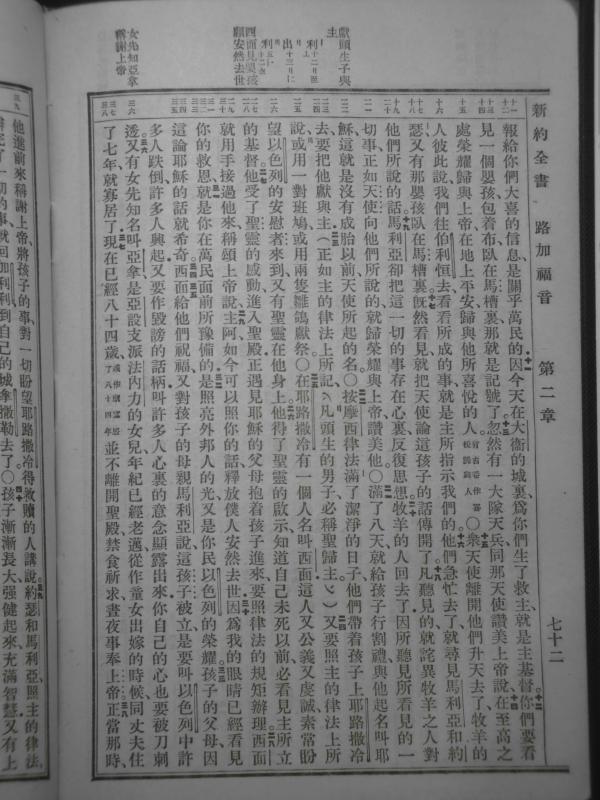 新約全書 路加福音 第二章 七十二
報給你們大喜的信息是關乎萬民的因今天在大衞的城裏爲你們生了救主就是主基督你們要看
見一個嬰孩包着布臥在馬槽裏那就是記號了忽然有一大隊天兵同那天使讚美上帝說在至高之
處榮耀歸與上帝在地上平安歸與他所喜悅的人〇衆天使離開他們升天去了牧羊的
人彼此說我們往伯利恒去看看所成的事就是主所指示我們的他們急忙去了就尋見馬利亞和約
瑟又有那嬰孩臥在馬槽裏旣然看見就把天使論這孩子的話傳開了凡聽見的就詫異牧羊之人對
他們所說的話馬利亞卻把這一切的事存在心裏反復思想牧羊的人回去了因所聽見所看見的一
切事正如天使向他們所說的就歸榮耀與上帝讚美他〇滿了八天就給孩子行割禮與他起名叫耶
穌這就是沒有成胎以前天使所起的名〇按摩西律法滿了潔淨的日子他們帶着孩子上耶路撒冷
去要把他獻與主(正如主的律法上所記凡頭生的男子必稱聖歸主)又要照主的律法上所
說或用一對班鳩或用兩隻雛鴿獻祭〇在耶路撒冷有一個人名叫西面這人又公義又虔誠素常盼
望以色列的安慰者來到又有聖靈在他身上他得了聖靈的啟示知道自己未死以前必看見主所立
的基督他受了聖靈的感動進入聖殿正遇見耶穌的父母抱着孩子進來要照律法的規矩辦理西面
就用手接過他來稱頌上帝說主阿如今可以照你的話釋放僕人安然去世因爲我的眼睛已經看見
你的救恩就是你在萬民面前所豫備的是照亮外邦人的光又是你民以色列的榮耀孩子的父母因
這論耶穌的話就希奇西面給他們祝福又對孩子的母親馬利亞說這孩子被立是要叫以色列中許
多人跌倒許多人興起又要作毀謗的話柄叫許多人心裏的意念顯露出來你自己的心也要被刀刺
透又有女先知名叫亞拿是亞設支派法內力的女兒年紀已經老邁從作童女出嫁的時候同丈夫住
了七年就寡居了現在已經八十四歲並不離開聖殿禁食祈求晝夜事奉上帝正當那時
獻頭生子與
主
西面見嬰孩
願安然去世
女先知亞拿
稱謝上帝
他進前來稱謝上帝將孩子的事對一切盼望耶路撒冷得救贖的人講說約瑟和馬利亞照主的律法
辦完了一切的事就回加利利到自己的城拿撒勒去了〇孩子漸漸長大强健起來充滿智慧又有上